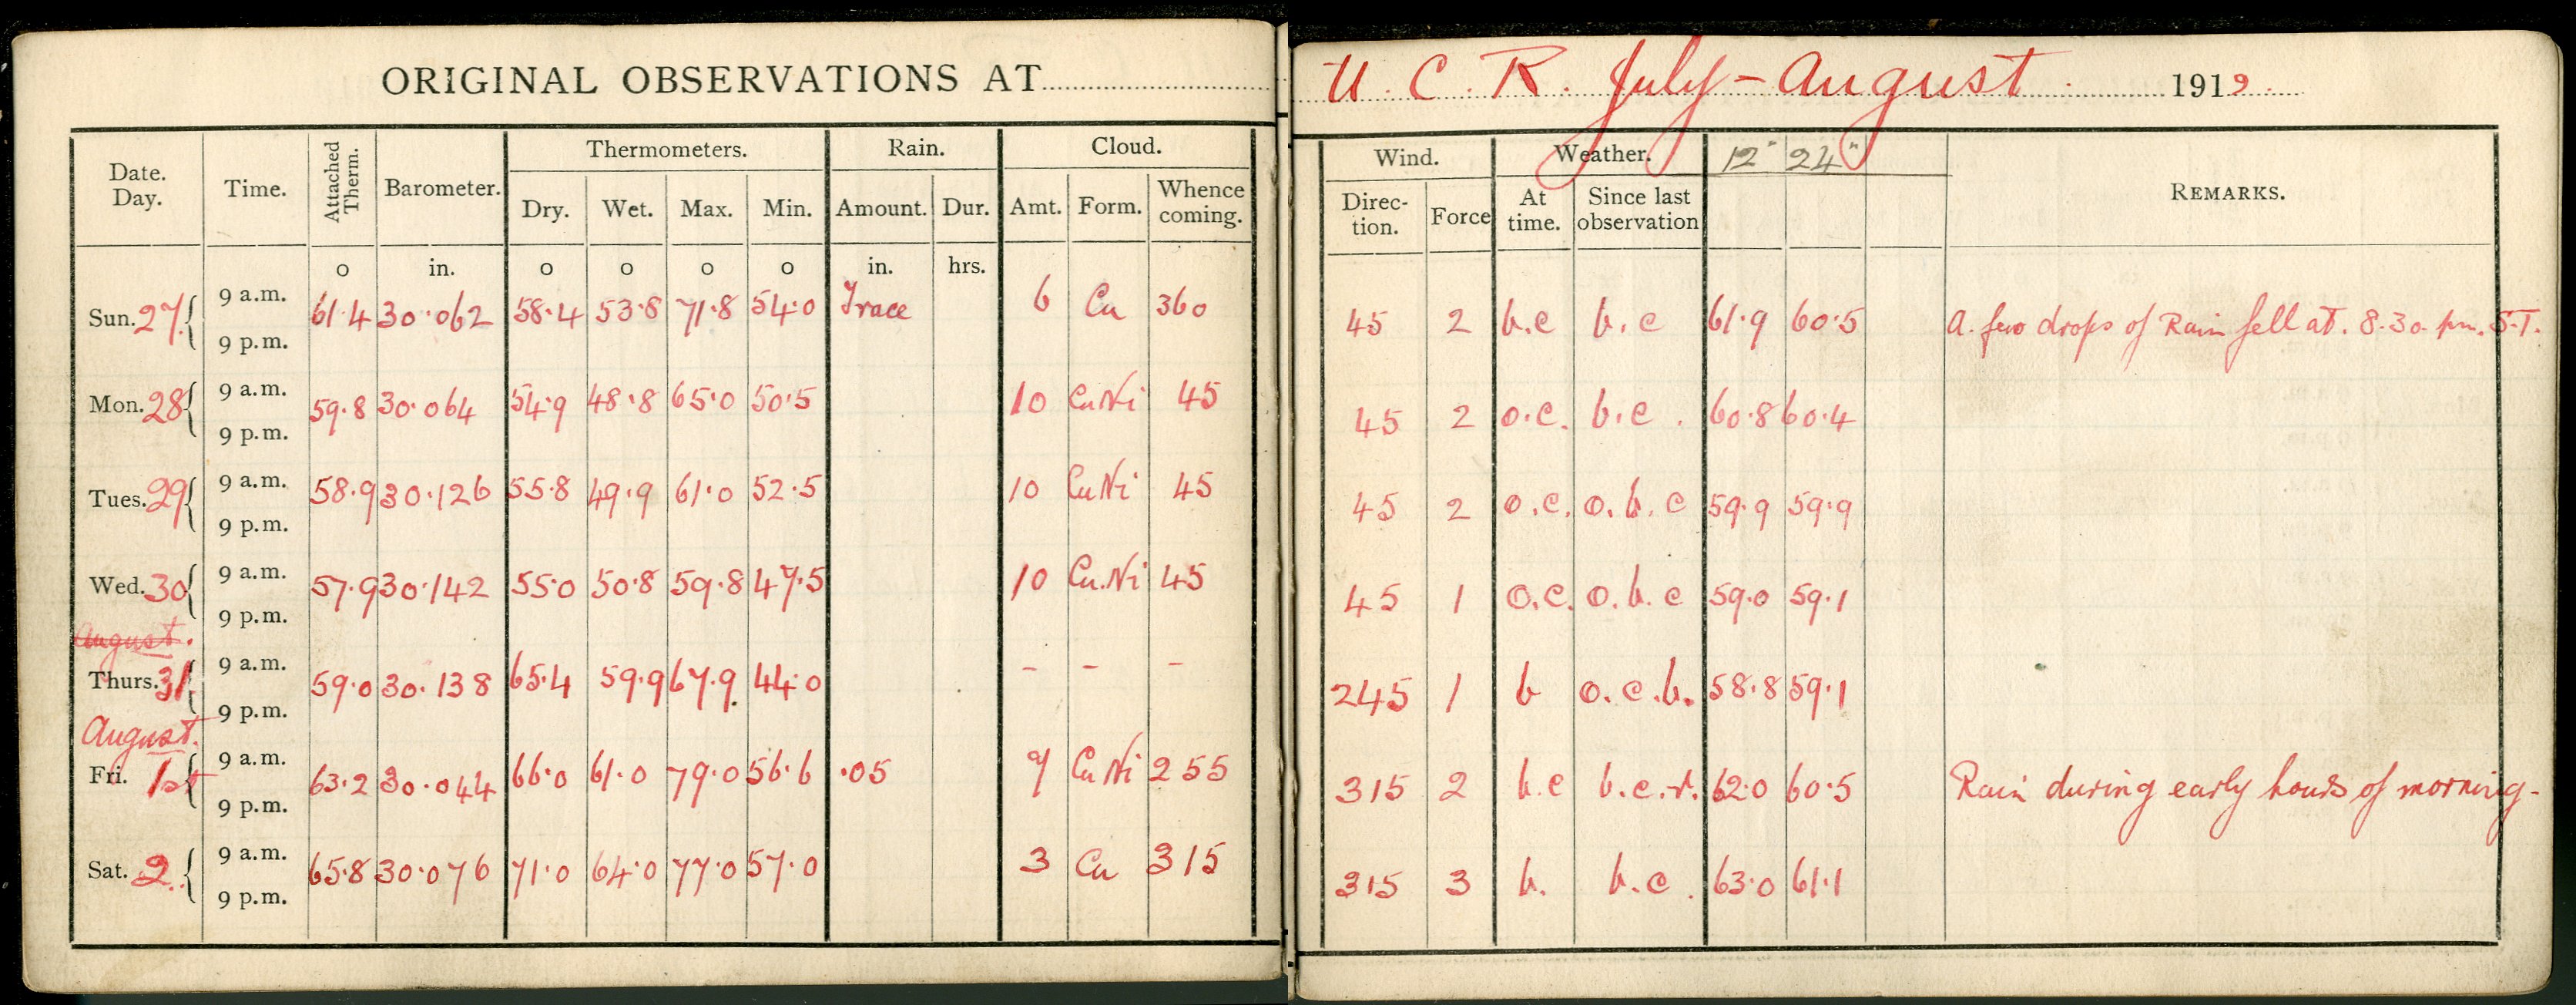 ORIGINAL OBSERVATIONS AT U. C. R. July - August 1919.
Date. Day. Time. Attached Therm. Barometer. Thermometers. Rain. Cloud. Wind. Weather. 12" 24" REMARKS.
Dry. Wet. Max. Min. Amount. Dur. Amt. Form. Whence coming. Direction. Force At time. Since last observation
o in. o o o o in. hrs.
Sun. 27. 9 a.m. 61.4 30.062 58.4 53.8 71.8 54.0 Trace 6 Cu 360 45 2 b.c b.c 61.9 60.5 A. few drops of Rain fell at. 8.30. pm. S.T.
9 p.m.
Mon. 28 9 a.m. 59.8 30.064 54.9 48.8 65.0 50.5 10 CuNi 45 45 2 o.c. b.c. 60.8 60.4
9 p.m.
Tues. 29 9 a.m. 58.9 30.126 55.8 49.9 61.0 52.5 10 CuNi 45 45 2 o.c. o.b.c 59.9 59.9
9 p.m.
Wed. 30 9 a.m. 57.9 30.142 55.0 50.8 59.8 47.5 10 Cu.Ni 45 45 1 o.c. o.b.c 59.0 59.1
9 p.m.
August.
Thurs. 31. 9 a.m. 59.0 30.138 65.4 59.9 67.9. 44.0 - - - 245 1 b o.c.b. 58.8 59.1
9 p.m.
August.
Fri. 1st 9 a.m. 63.2 30.044 66.0 61.0 79.0 56.6 .05 9 CuNi 255 315 2 b.c b.c.r. 62.0 60.5 Rain during early hours of morning-
9 p.m.
Sat. 2. 9 a.m. 65.8 30.076 71.0 64.0 77.0 57.0 3 Cu 315 315 3 b. b.c. 63.0 61.1
9 p.m.